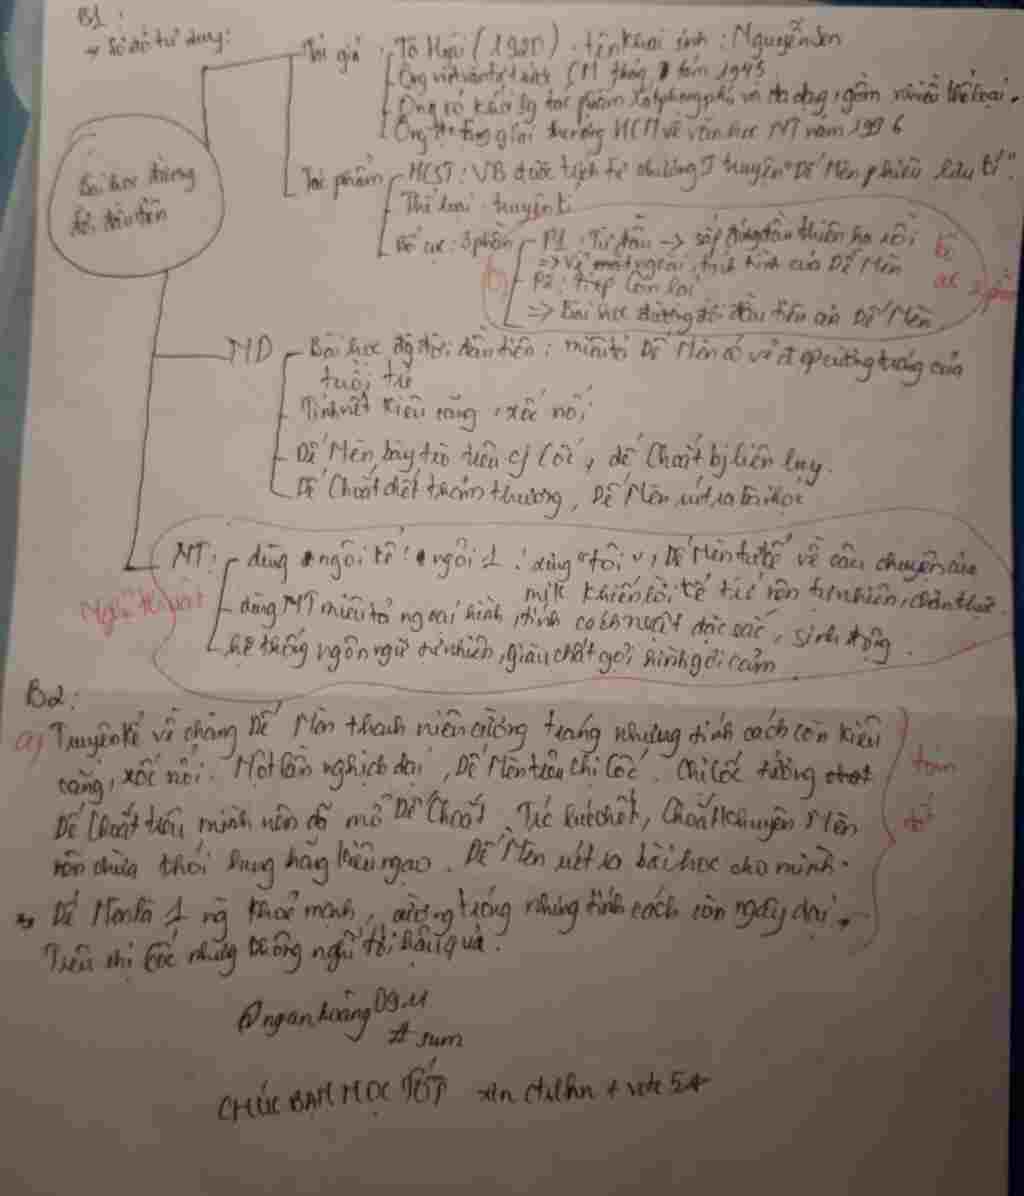 B1:
→ Sơ đồ tư duy:
Bài học đường
đời đầu tiên
Tác giả
- Tô Hoài (1920). tên khai sinh: Nguyễn Sen
- Ông viết văn từ trước CM tháng 8 năm 1945
- Ông có khối lg tác phẩm rất phong phú và đa dạng, gồm nhiều thể loại.
- Ông tặng giải thưởng HCM về văn học NT năm 1996
Tác phẩm
- HCST: VB được trích từ chương I truyện "Dế Mèn phiêu lưu kí".
- Thể loại: truyện kí
- Bố cục: 3 phần
- P1: Từ đầu → sắp đứng đầu thiên hạ rồi
=> Vẻ mặt ngoài, tính tình của Dế Mèn
- P2: tiếp còn lại
=> Bài học đường đời đầu tiên của Dế Mèn
b)
bố
cục 2 phần
ND
- Bài học đg đời đầu tiên: miêu tả Dế Mèn có vẻ đẹp cường tráng của
tuổi trẻ
- Tính nết kiêu căng, xốc nổi
- Dế Mèn bày trò trêu cj Cốc, dế Choắt bị liên lụy.
- Dế Choắt chết thảm thương, Dế Mèn rút ra bài học
NT:
- dùng ngôi kể: ngôi 1: xưng "tôi", Dế Mèn tự kể về câu chuyện của
mik khiến lời kể trở nên tự nhiên, chân thực.
- dùng NT miêu tả ngoại hình, tính cách nhân vật đặc sắc, sinh động.
- hệ thống ngôn ngữ tự nhiên, giàu chất gợi hình gợi cảm
Nghệ thuật
B2:
a) Truyện kể về chàng Dế Mèn thanh niên cường tráng nhưng tính cách còn kiêu
căng, xốc nổi. Một lần nghịch dại, Dế Mèn trêu chị Cốc. Chị Cốc tưởng
Dế Choắt trêu mình nên đã mổ Dế Choắt. Trc lúc chết, Choắt khuyên Mèn
nên chừa thói hung hăng kiêu ngạo. Dế Mèn rút ra bài học cho mình.
→ Dế Mèn là 1 ng khoẻ mạnh, cường tráng nhưng tính cách còn ngây dại.
Trêu chị Cốc nhưng không nghĩ tới hậu quả.
tóm
tắt
@nganhoang09.11
# sum
CHÚC BẠN HỌC TỐT xin ctlhn + vote 5*